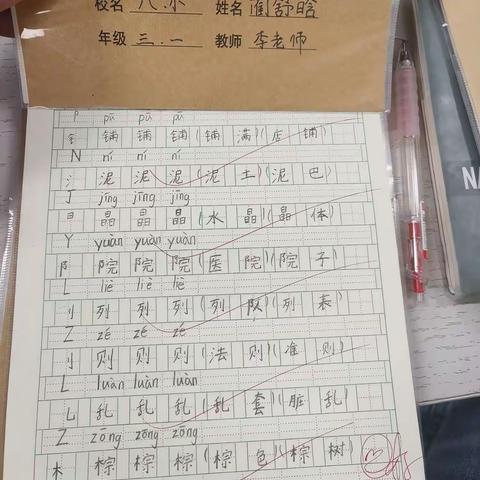 校名 八.小 姓名 蔺舒晗
年级 三.一 教师 李老师
P pū pū pū
钅 铺 铺 铺 (铺 满)(店 铺)
N ní ní ní
氵 泥 泥 泥 (泥 土)(泥 巴)
J jīng jīng jīng
日 晶 晶 晶 (水 晶)(晶 体)
Y yuàn yuàn yuàn
阝 院 院 院 (医 院)(院 子)
L liè liè liè
刂 列 列 列 (列 队)(列 表)
Z zé zé zé
刂 则 则 则 (法 则)(准 则)
L luàn luàn luàn
乚 乱 乱 乱 (乱 套)(脏 乱)
Z zōng zōng zōng
木 棕 棕 棕 (棕 色)(棕 树)
NA